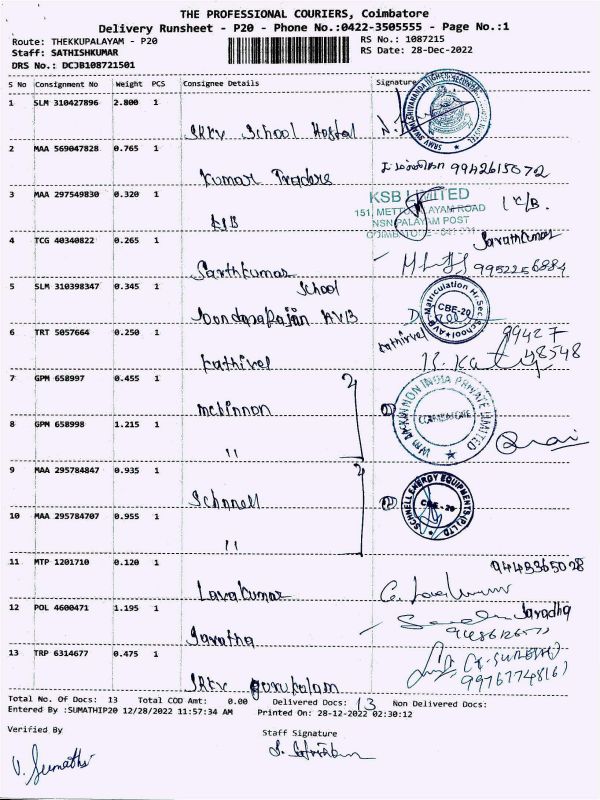 THE PROFESSIONAL COURIERS, Coimbatore
Delivery Runsheet - P20 - Phone No.:0422-3505555 - Page No.:1
Route: THEKKUPALAYAM - P20 RS No.: 1087215
Staff: SATHISHKUMAR RS Date: 28-Dec-2022
DRS No.: DCJB108721501
S No Consignment No Weight PCS Consignee Details Signature
1 SLM 310427896 2.800 1
SRKV School Hostel
2 MAA 569047828 0.765 1
Kumar Traders 9942615072
3 MAA 297549830 0.320 1
KSB LIMITED
151, METTUPALAYAM ROAD
NSN PALAYAM POST
COIMBATORE - 641 031
KSB
4 TCG 40340822 0.265 1
Sarathkumar
Sarthkumar 9952256884
5 SLM 310398347 0.345 1
School
AVB
CBE-20
6 TRT 5057664 0.250 1
Kathirvel 99427
48548
Kathirvel R. Kathir
7 GPM 658997 0.455 1
mckinnon
8 GPM 658998 1.215 1
WM MCKINNON INDIA PRIVATE LIMITED
COIMBATORE
"
9 MAA 295784847 0.935 1
Schnnell
SCHNELL ENERGY EQUIPMENTS (P) LTD
CBE - 29
10 MAA 295784707 0.955 1
"
11 MTP 1201710 0.120 1
9443365028
Lavakumar
12 POL 4600471 1.195 1
Saradha
Saratha
13 TRP 6314677 0.475 1
SRKV gurukulam
Total No. Of Docs: 13 Total COD Amt: 0.00 Delivered Docs: 13 Non Delivered Docs:
Entered By :SUMATHIP20 12/28/2022 11:57:34 AM Printed On: 28-12-2022 02:30:12
Verified By Staff Signature
V. Sumathi